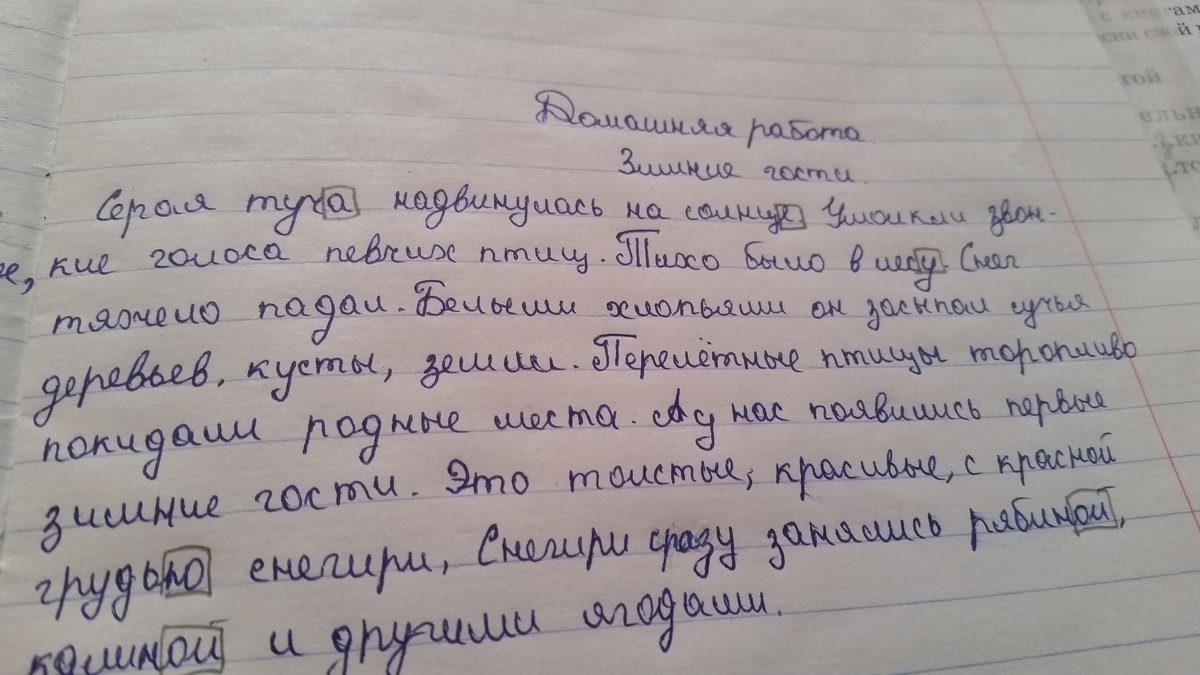 Домашняя работа
Зимние гости.
Серая туча надвинулась на солнце Умолкли звон-
кие голоса певчих птиц. Тихо было в лесу. Снег
тяжело падал. Белыми хлопьями он засыпал сучья
деревьев, кусты, земли. Перелётные птицы торопливо
покидали родные места. А у нас появились первые
зимние гости. Это толстые, красивые, с красной
грудью снегири, Снегири сразу занялись рябиной,
калиной и другими ягодами.
той
ельн